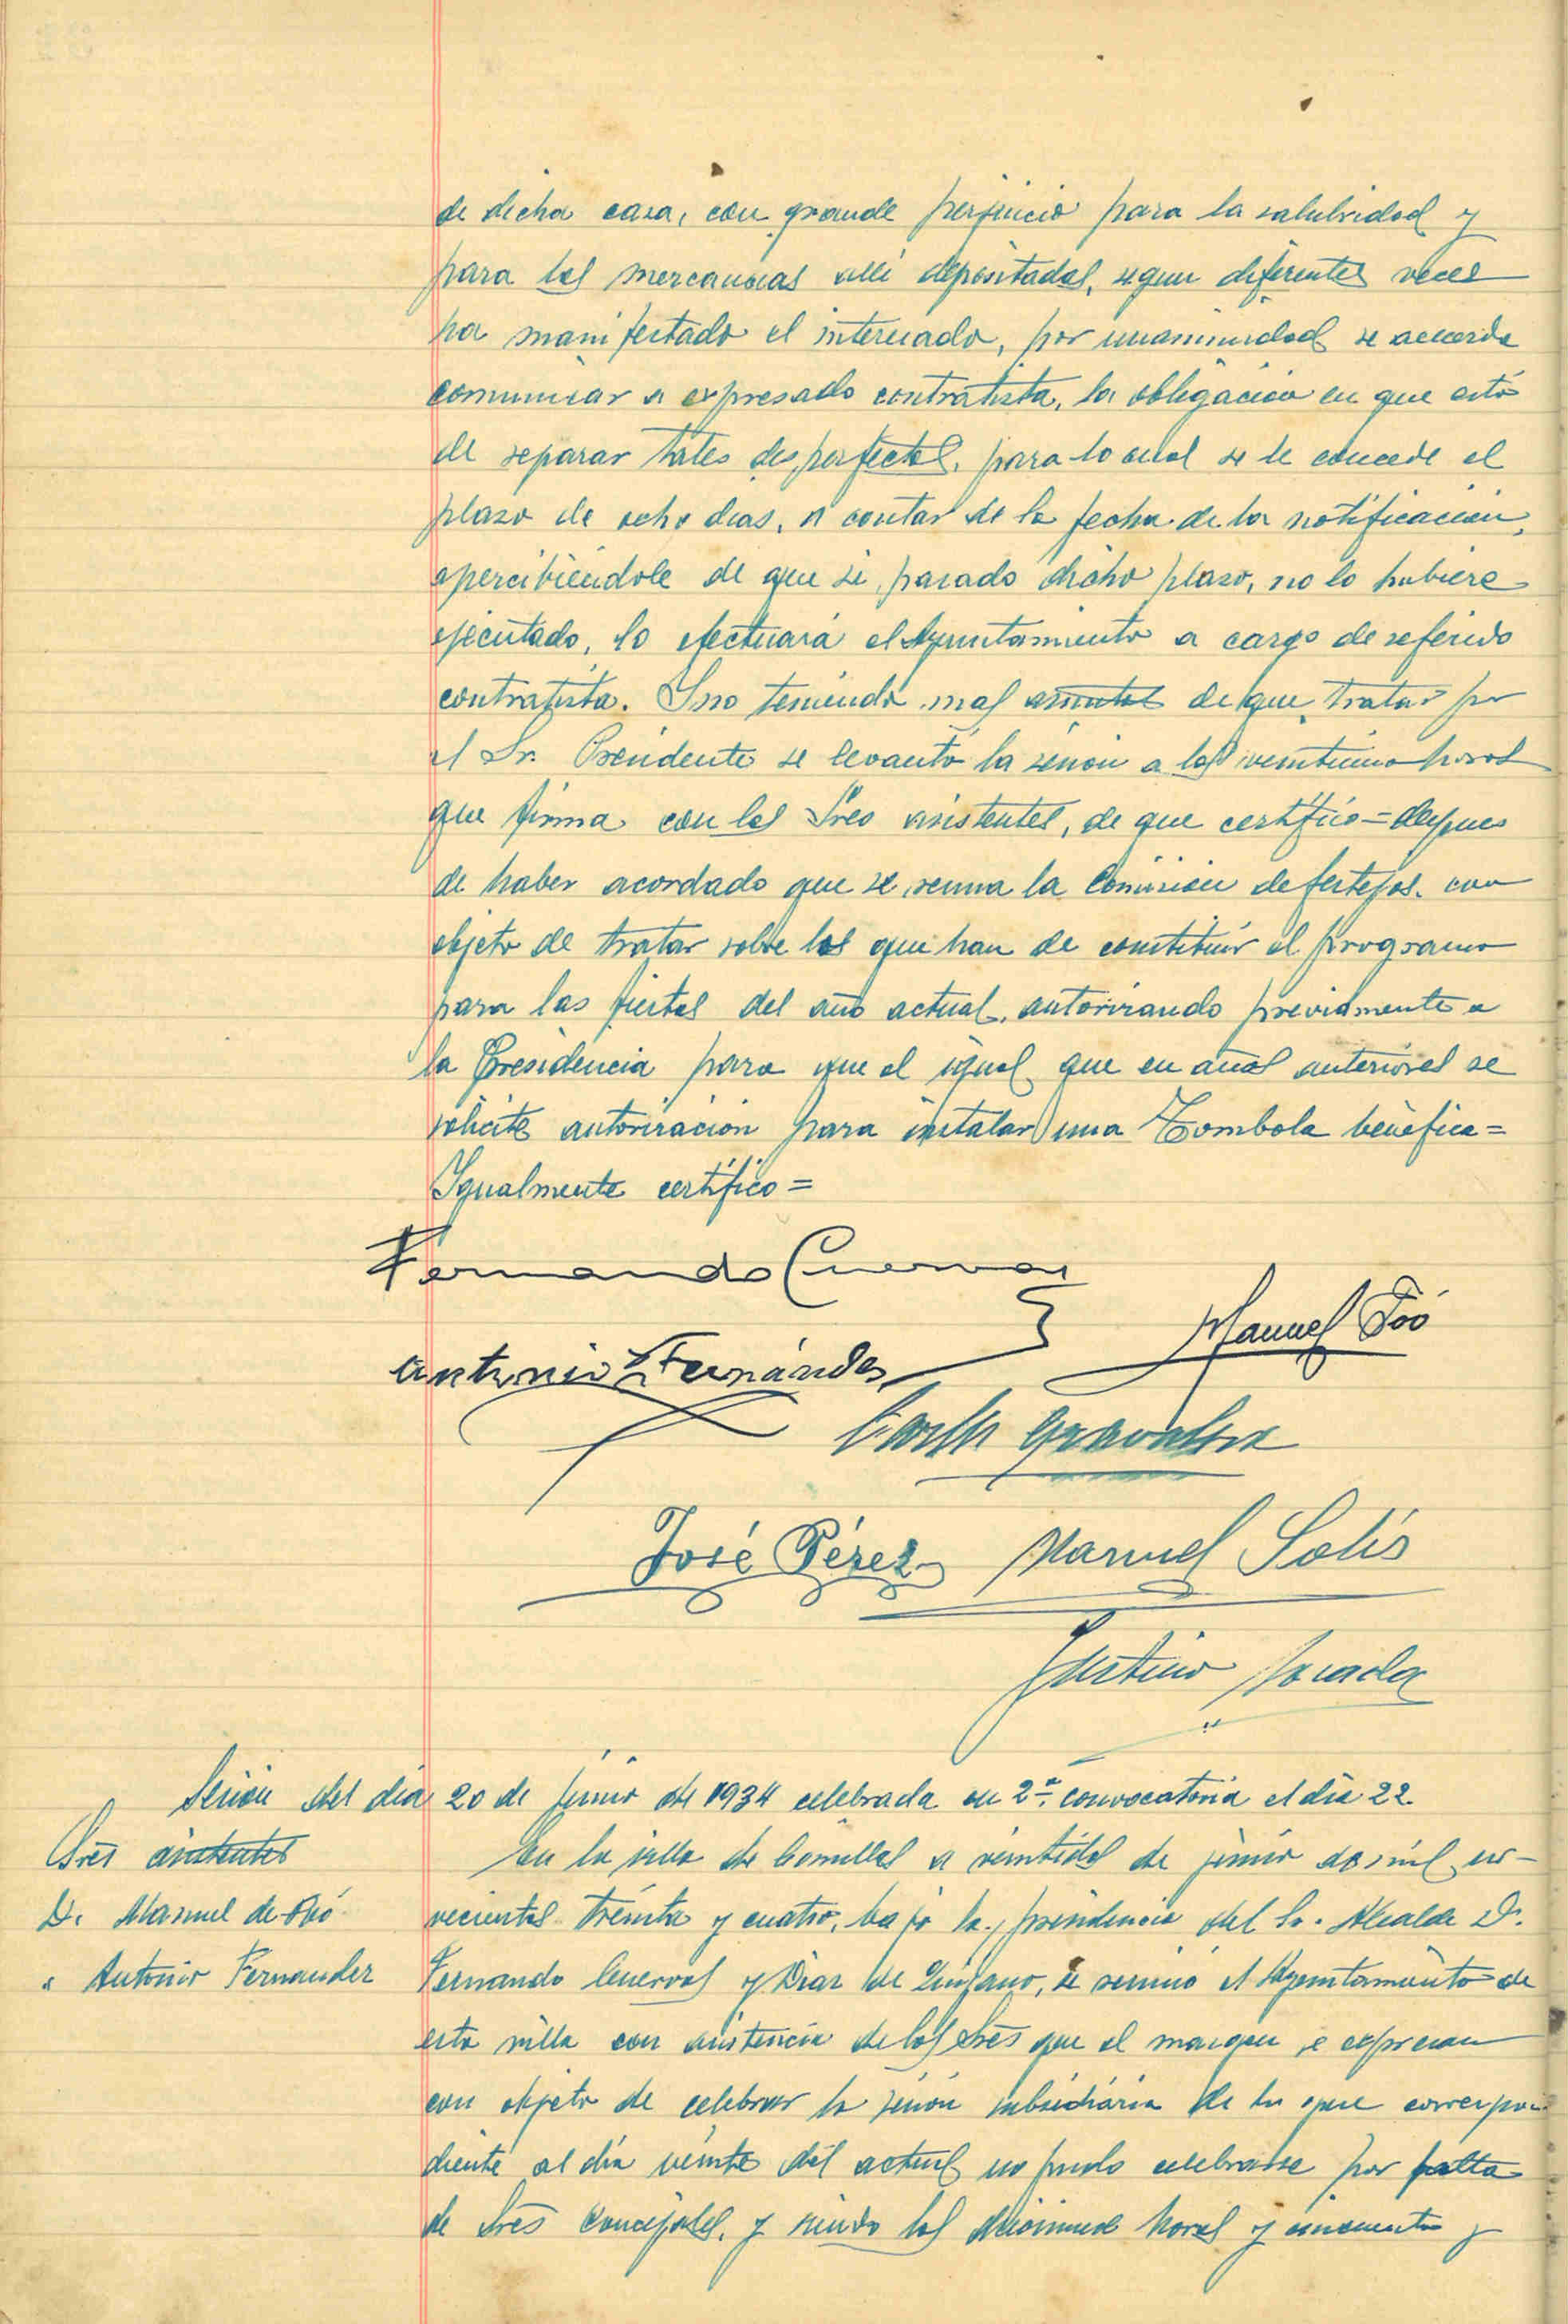 de dicha casa, con grande perjuicio para la salubridad y
para las mercancias alli depositadas, segun diferentes veces
ha manifestado el interesado, por unanimidad se acuerda
comunicar a expresado contratista, la obligación en que está
de reparar tales desperfectos, para lo cual se le concede el
plazo de ocho dias, a contar de la fecha de la notificación,
apercibiéndole de que si, pasado dicho plazo, no lo hubiere
ejecutado, lo efectuará el Ayuntamiento a cargo de referido
contratista. Y no teniendo mas asuntos de que tratar por
el Sr. Presidente se levantó la sesión a las veintiuna horas
que firma con los Sres asistentes, de que certifico = despues
de haber acordado que se reuna la Comisión de festejos con
objeto de tratar sobre los que han de constituir el programa
para las fiestas del año actual, autorizando previamente a
la Presidencia para que al igual que en años anteriores se
solicite autorización para instalar una Tombola benéfica =
Igualmente certifico =
Fernando Cuevas
Manuel
Antonio Fernández
José Pérez Manuel Solís
Sesión del dia 20 de junio de 1934 celebrada en 2ª convocatoria el día 22.
Sres asistentes
D. Manuel de
" Antonio Fernandez
En la villa de Comillas a veintidos de junio de mil no-
vecientos treinta y cuatro, bajo la presidencia del Sr. Alcalde D.
Fernando Cuevas y Diaz de Quijano, se reunió el Ayuntamiento de
esta villa con asistencia de los Sres que al margen se expresan
con objeto de celebrar la sesión subsidiaria de la que correspon-
diente al día veinte del actual no pudo celebrarse por falta
de Sres Concejales, y siendo las diecinueve horas y cincuenta y